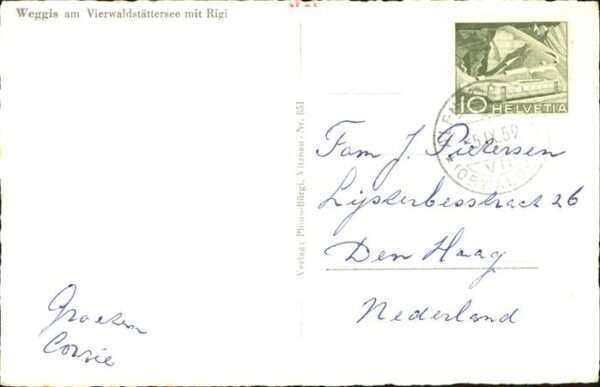 Weggis am Vierwaldstättersee mit Rigi
10 HELVETIA
IX. 59
VII
Verlag: Photo-Bürgi, Vitznau - Nr. 851
Fam J. Pietersen
Lijsterbesstraat 26
Den Haag
Nederland
Groeten
Corrie